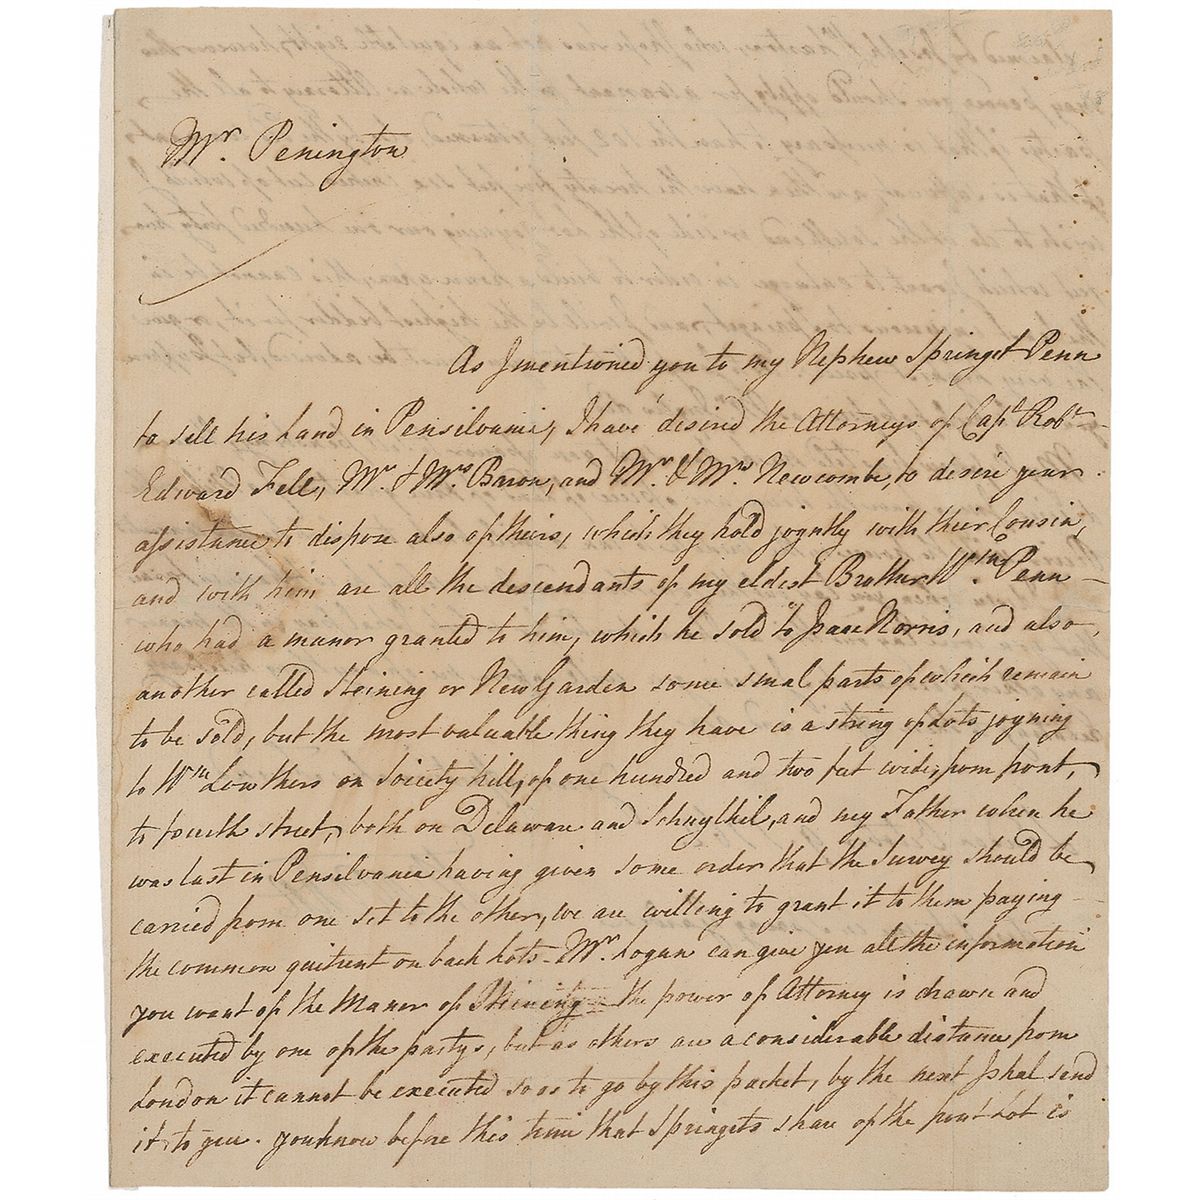 Mr. Penington
As I mentioned you to my Nephew Springet Penn
to sell his Land in Pensilvania, I have desired the Attorneys of Capt Robt
Edward Fell, Mr. & Mrs Baron, and Mr. & Mrs Newcombe, to desire your
assistance to dispose also of theirs, which they hold joyntly with their Cousin,
and with him are all the descendants of my eldest Brother Wm. Penn
who had a manor granted to him, which he sold to Isaac Norris, and also
another called Steining or New Garden some smal parts of which remain
to be sold, but the most valuable thing they have is a string of Lots joyning
to Wm Lowthers on Society hill, of one hundred and two feet wide, from front,
to fourth street, both on Delaware and Schuylkil, and my Father when he
was last in Pensilvania having given some order that the Survey should be
carried from one set to the other, we are willing to grant it to them paying
the common quitrent on back Lots - Mr. Logan can give you all the information
you want of the Manor of Steining - the power of Attorney is drawn and
executed by one of the partys, but as others are a considerable distance from
London it cannot be executed so as to go by this packet, by the next I shal send
it to you. you know before this time that Springets share of the front Lot is